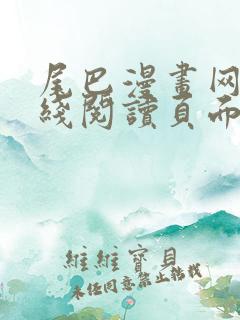 尾巴漫畫网
綫閱讀頁而
維維寶貝
未经同意禁止轉載